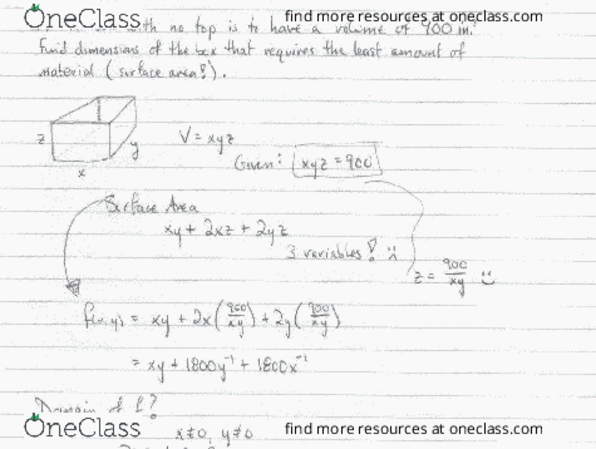 OneClass find more resources at oneclass.com
with no top is to have a volume of 900 m.
Find dimensions of the box that requires the least amount of
material (surface area!).
z
y
x
V = xyz
Given: xyz = 900
Surface Area
xy + 2xz + 2yz
3 variables!
z = 900/xy
f(x,y) = xy + 2x(900/xy) + 2y(900/xy)
= xy + 1800y⁻¹ + 1800x⁻¹
Domain of f?
OneClass find more resources at oneclass.com
x≠0, y≠0